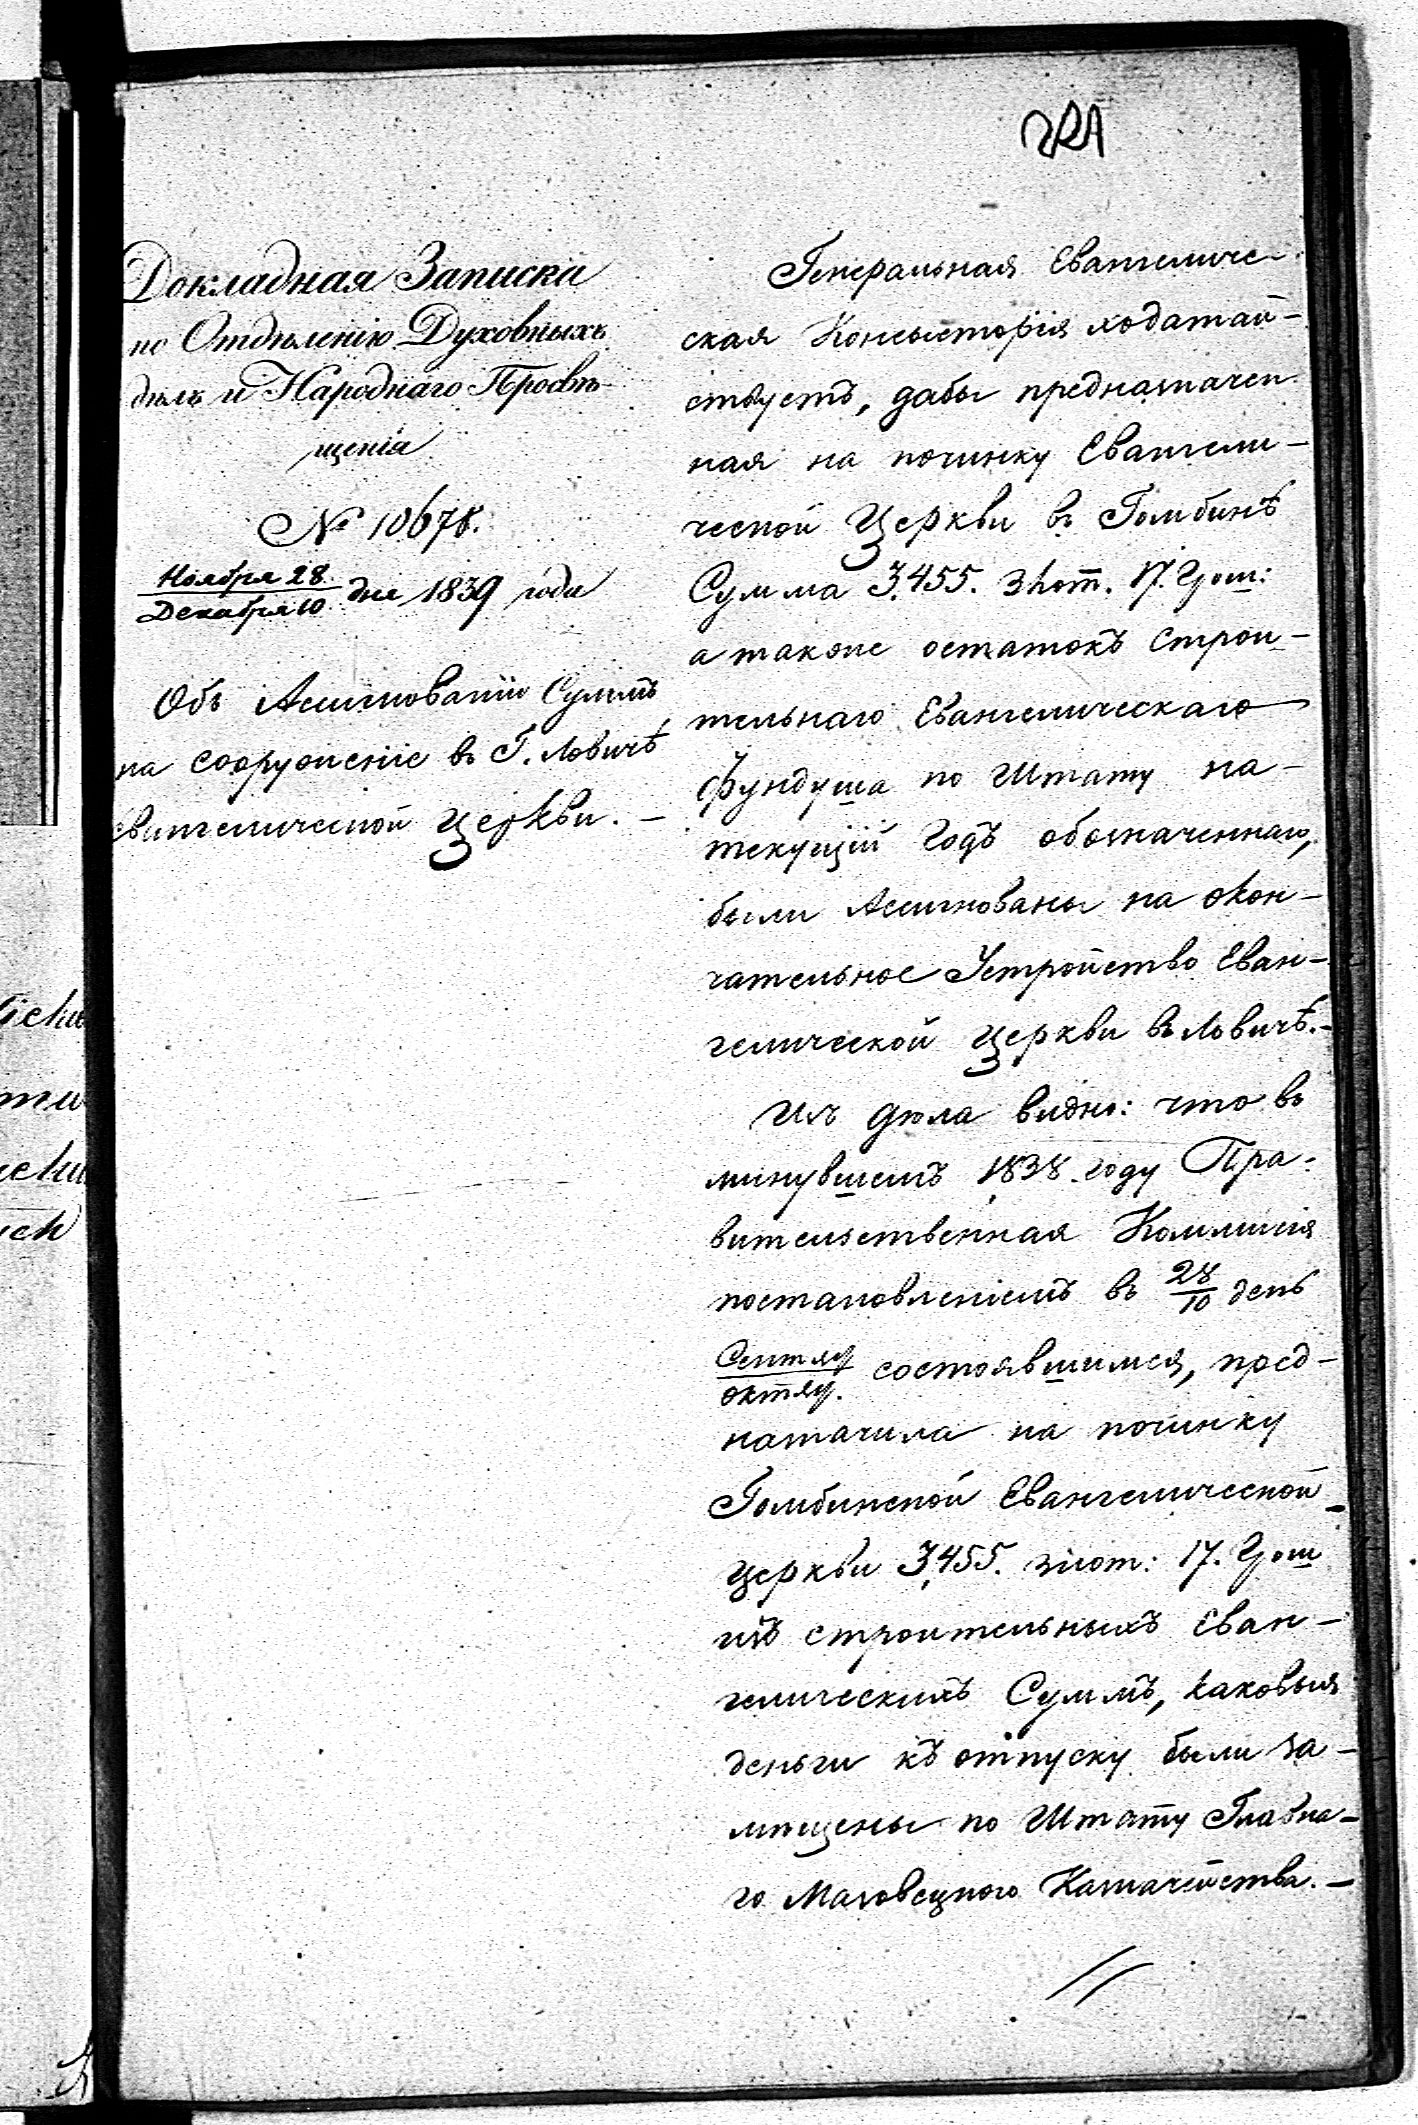 Докладная Записка
по Отдѣленію Духовныхъ
дѣлъ и Народнаго Просвѣ-
щенія
№ 10678.
Ноября 28
Декабря 10 дня 1839 года
Объ Ассигнованіи Суммъ
на сооруженіе въ Г. Ловичѣ
Евангелической Церкви. —
Генеральная Евангеличе-
ская Консысторія ходатай-
ствуетъ, дабы предназначен
ная на починку Евангели-
ческой Церкви въ Гомбинѣ
Сумма 3,455. злот. 17. Грош:
а также остатокъ строи-
тельнаго Евангелическаго
Фундуша по Штату на-
текущій Годъ обозначеннаго,
были Ассигнованы на окон-
чательное Устройство Еван-
гелической Церкви въ Ловичѣ. -
Изъ дѣла видно: что въ
минувшемъ 1838. году Пра-
вительственная Коммисія
постановленіемъ въ 28/10 день
Сентяб/Октяб. состоявшимся, пред-
назначила на починку
Гомбинской Евангелической
Церкви 3,455. злот: 17. Грош
изъ строительныхъ Еван-
гелическихъ Суммъ, каковыя
деньги къ отпуску были за-
мѣщены по Штату Главна-
го Мазовецкого Казначейства. —